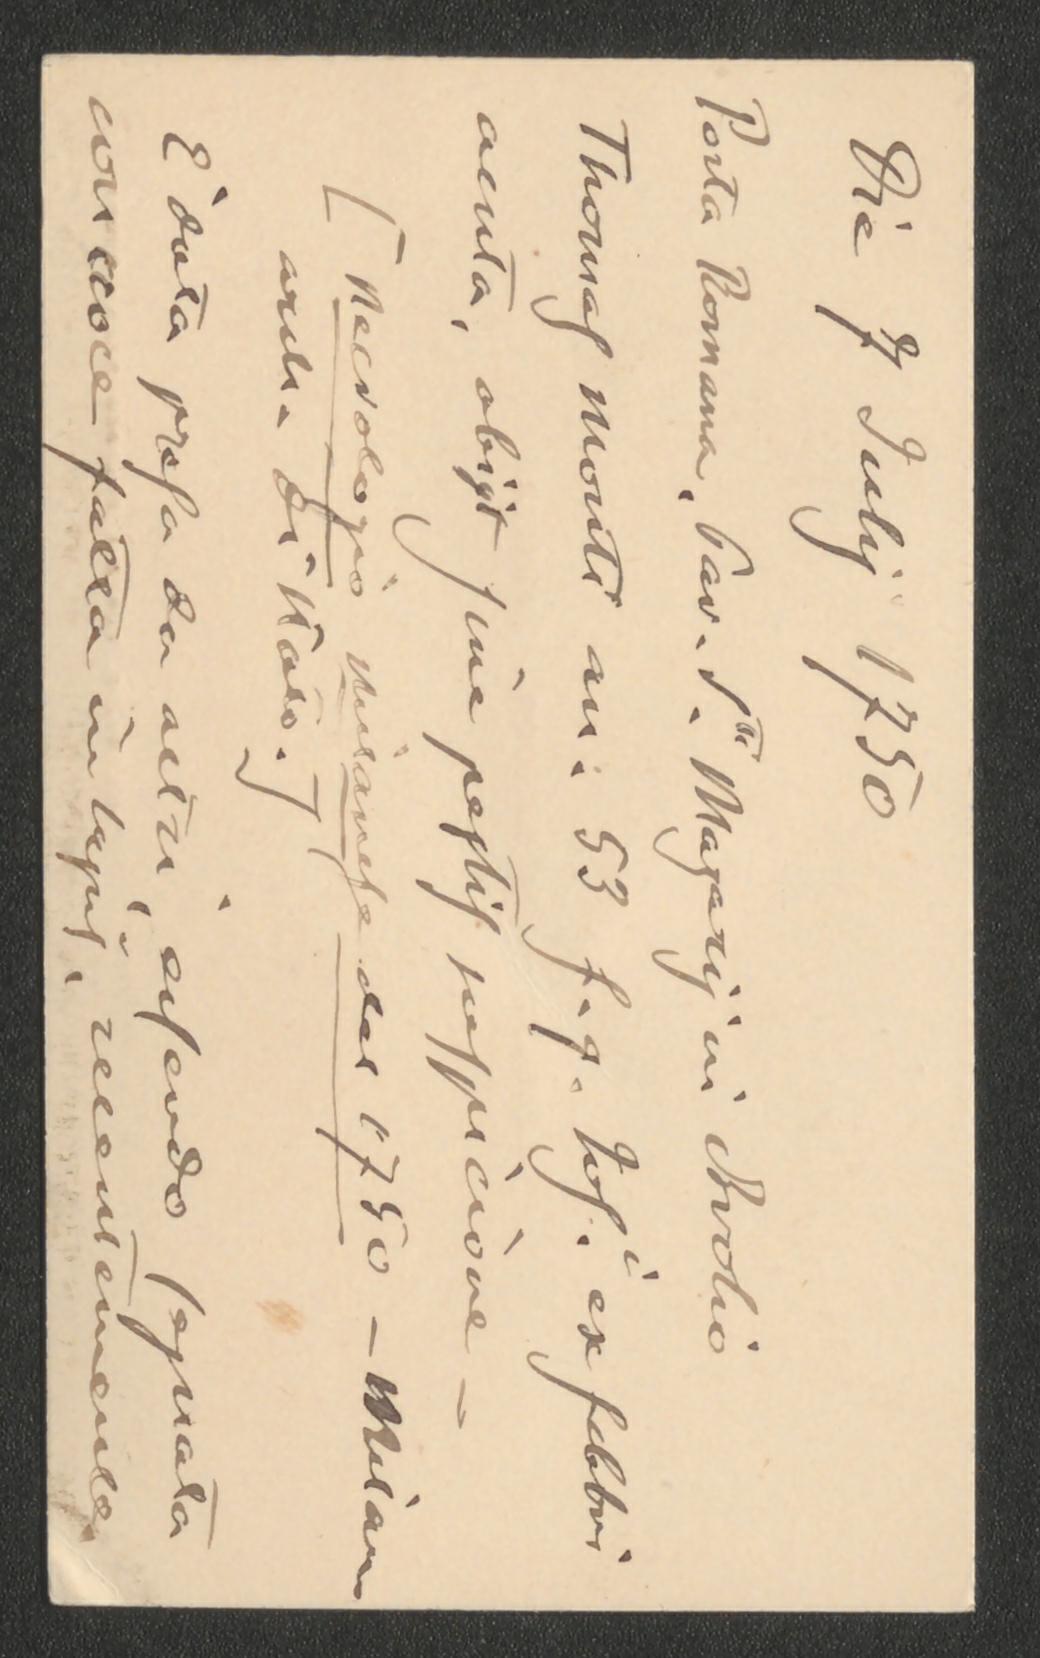 Die 7 Julij 1750
Porta Romana, Par. S.ti Nazarij in Brolio
Thomas Monti an: 53 f. q. Jos.i ex febbri
acuta, obijt sine pestis suspicione —
[Necrologio Milanese del 1750 — Milano
arch. di Stato.]
È data presa da altri, essendo segnata
con croce fatta in lapis, recentemente,